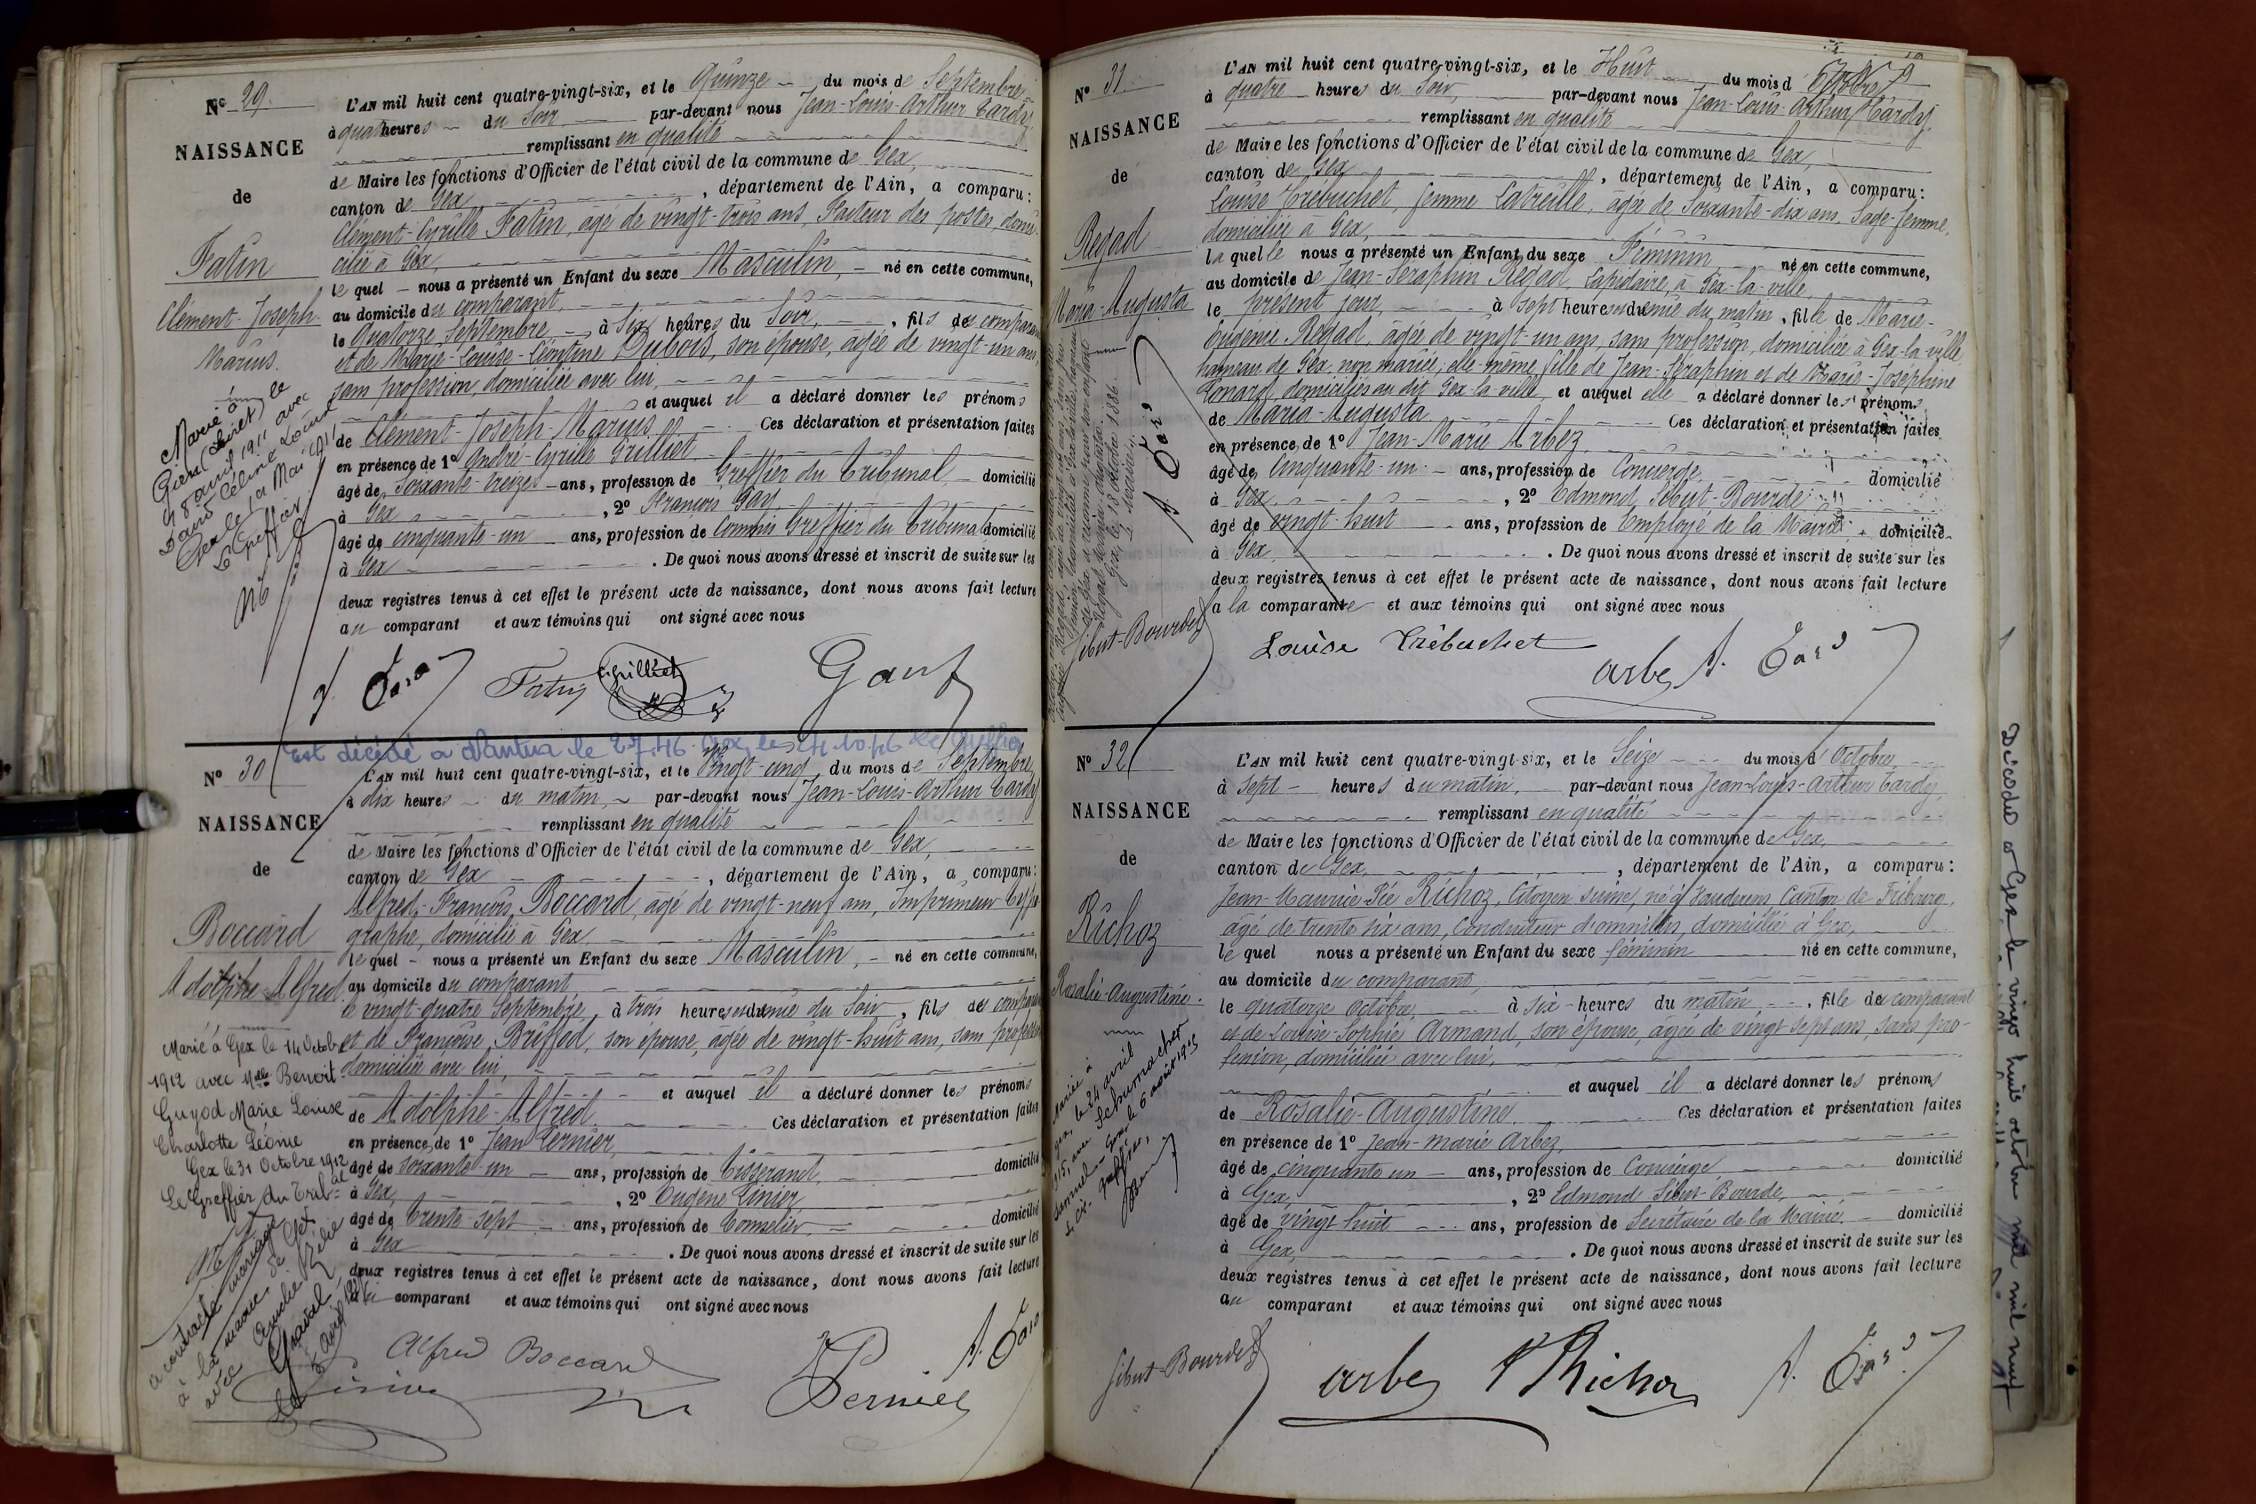 Nº 29.
NAISSANCE
de
Fatin
Clément-Joseph-
Marius.
L'AN mil huit cent quatre-vingt-six, et le Quinze du mois de Septembre
à quatre heures du Soir, par-devant nous Jean-Louis-Arthur Tardy
remplissant en qualité
de Maire les fonctions d'Officier de l'état civil de la commune de Gex,
canton de Gex, département de l'Ain, a comparu:
Clément-Cyrille Fatin, âgé de vingt-trois ans, Facteur des postes, domi-
cilié à Gex,
le quel nous a présenté un Enfant du sexe Masculin, né en cette commune,
au domicile du comparant,
le Quatorze Septembre à Six heures du Soir, fils de comparant
et de Marie-Louise-Léontine Dubois, son épouse, âgée de vingt-un ans,
sans profession, domiciliée avec lui,
et auquel il a déclaré donner les prénoms
de Clément-Joseph-Marius Ces déclaration et présentation faites
en présence de 1º André-Cyrille Grilliet
âgé de Soixante-treize ans, profession de Greffier du Tribunal, domicilié
à Gex, 2º François Gay
âgé de cinquante-un ans, profession de Commis Greffier du Tribunal domicilié
à Gex. De quoi nous avons dressé et inscrit de suite sur les
deux registres tenus à cet effet le présent acte de naissance, dont nous avons fait lecture
au comparant et aux témoins qui ont signé avec nous
Marié à
le
8 avril 1911 avec
Céline Louise
Gex le Mai 1911
Le Greffier
Fatin Grilliet
Est décédé à Nantua le
Nº 30
NAISSANCE
de
Boccard
Adolphe Alfred
L'AN mil huit cent quatre-vingt-six, et le Vingt-cinq du mois de Septembre
à dix heures du matin, par-devant nous Jean-Louis-Arthur Tardy
remplissant en qualité
de Maire les fonctions d'Officier de l'état civil de la commune de Gex,
canton de Gex, département de l'Ain, a comparu:
Alfred-François Boccard, âgé de vingt-neuf ans, Imprimeur Typo-
graphe, domicilié à Gex,
le quel nous a présenté un Enfant du sexe Masculin, né en cette commune,
au domicile du comparant
le vingt-quatre Septembre, à trois heures du Soir, fils de comparant
et de Françoise Briffod, son épouse, âgée de vingt-huit ans, sans profession
domiciliée avec lui,
et auquel il a déclaré donner les prénoms
de Adolphe-Alfred. Ces déclaration et présentation faites
en présence de 1º Jean Pernier,
âgé de soixante-un ans, profession de Tisserand, domicilié
à Gex, 2º Eugène Sinier
âgé de trente sept ans, profession de Tonnelier domicilié
à Gex. De quoi nous avons dressé et inscrit de suite sur les
deux registres tenus à cet effet le présent acte de naissance, dont nous avons fait lecture
au comparant et aux témoins qui ont signé avec nous
Marié à Gex le 14 Octobre
1912 avec Mlle Benoit
Guyod Marie Louise
Charlotte Léonie
Gex le 31 Octobre 1912
Le Greffier du Tribal
a contracté mariage
à la mairie de
avec
Alfred Boccard
Pernier
Nº 31
NAISSANCE
de
Regad
Maria-Augusta
L'AN mil huit cent quatre-vingt-six, et le Huit du mois d'Octobre
à quatre heures du Soir, par-devant nous Jean-Louis-Arthur Tardy
remplissant en qualité
de Maire les fonctions d'Officier de l'état civil de la commune de Gex,
canton de Gex, département de l'Ain, a comparu:
Louise Trébuchet, femme Latreille, âgée de Soixante-dix ans, Sage-femme,
domiciliée à Gex,
laquelle nous a présenté un Enfant du sexe Féminin né en cette commune,
au domicile de Jean-Séraphin Regad, Lapidaire, à Gex-la-ville,
le présent jour, à sept heures du matin, fille de Marie-
Eugénie Regad, âgée de vingt-un ans, sans profession, domiciliée à Gex-la-ville
hameau de Gex, non mariée; elle-même fille de Jean-Séraphin et de Marie-Joséphine
domiciliés au dit Gex-la-ville, et auquel elle a déclaré donner les prénoms
de Maria-Augusta Ces déclaration et présentation faites
en présence de 1º Jean-Marie Arbez
âgé de Cinquante-un ans, profession de Concierge, domicilié
à Gex, 2º Edmond Sibut-Bourde,
âgé de vingt-huit ans, profession de Employé de la Mairie domicilié
à Gex. De quoi nous avons dressé et inscrit de suite sur les
deux registres tenus à cet effet le présent acte de naissance, dont nous avons fait lecture
à la comparante et aux témoins qui ont signé avec nous
Sibut-Bourde
Louise Trébuchet
arbez
Nº 32
NAISSANCE
de
Richoz
Rosalie-Augustine.
L'AN mil huit cent quatre-vingt-six, et le Seize du mois d'Octobre,
à Sept heures du matin, par-devant nous Jean-Louis-Arthur Tardy,
remplissant en qualité
de Maire les fonctions d'Officier de l'état civil de la commune de Gex,
canton de Gex, département de l'Ain, a comparu:
Jean-Maurice-Pie Richoz, Citoyen suisse, né à Vauderens, Canton de Fribourg,
âgé de trente six ans, Conducteur d'omnibus, domicilié à Gex,
le quel nous a présenté un Enfant du sexe féminin né en cette commune,
au domicile du comparant,
le quatorze octobre, à six heures du matin, fille de comparant
et de Louise-Sophie Armand, son épouse, âgée de vingt sept ans, sans pro-
fession, domiciliée avec lui,
et auquel il a déclaré donner les prénoms
de Rosalie-Augustine. Ces déclaration et présentation faites
en présence de 1º Jean-marie Arbez,
âgé de cinquante un ans, profession de Concierge domicilié
à Gex, 2º Edmond Sibut-Bourde,
âgé de vingt huit ans, profession de Secrétaire de la Mairie. domicilié
à Gex,. De quoi nous avons dressé et inscrit de suite sur les
deux registres tenus à cet effet le présent acte de naissance, dont nous avons fait lecture
au comparant et aux témoins qui ont signé avec nous
Mariée à
Gex, le 24 avril
1915, avec Schumacher
Samuel Gex le 6 août 1915
Sibut-Bourde
arbez Richoz
Décédée à Gex le vingt huit octobre mil neuf